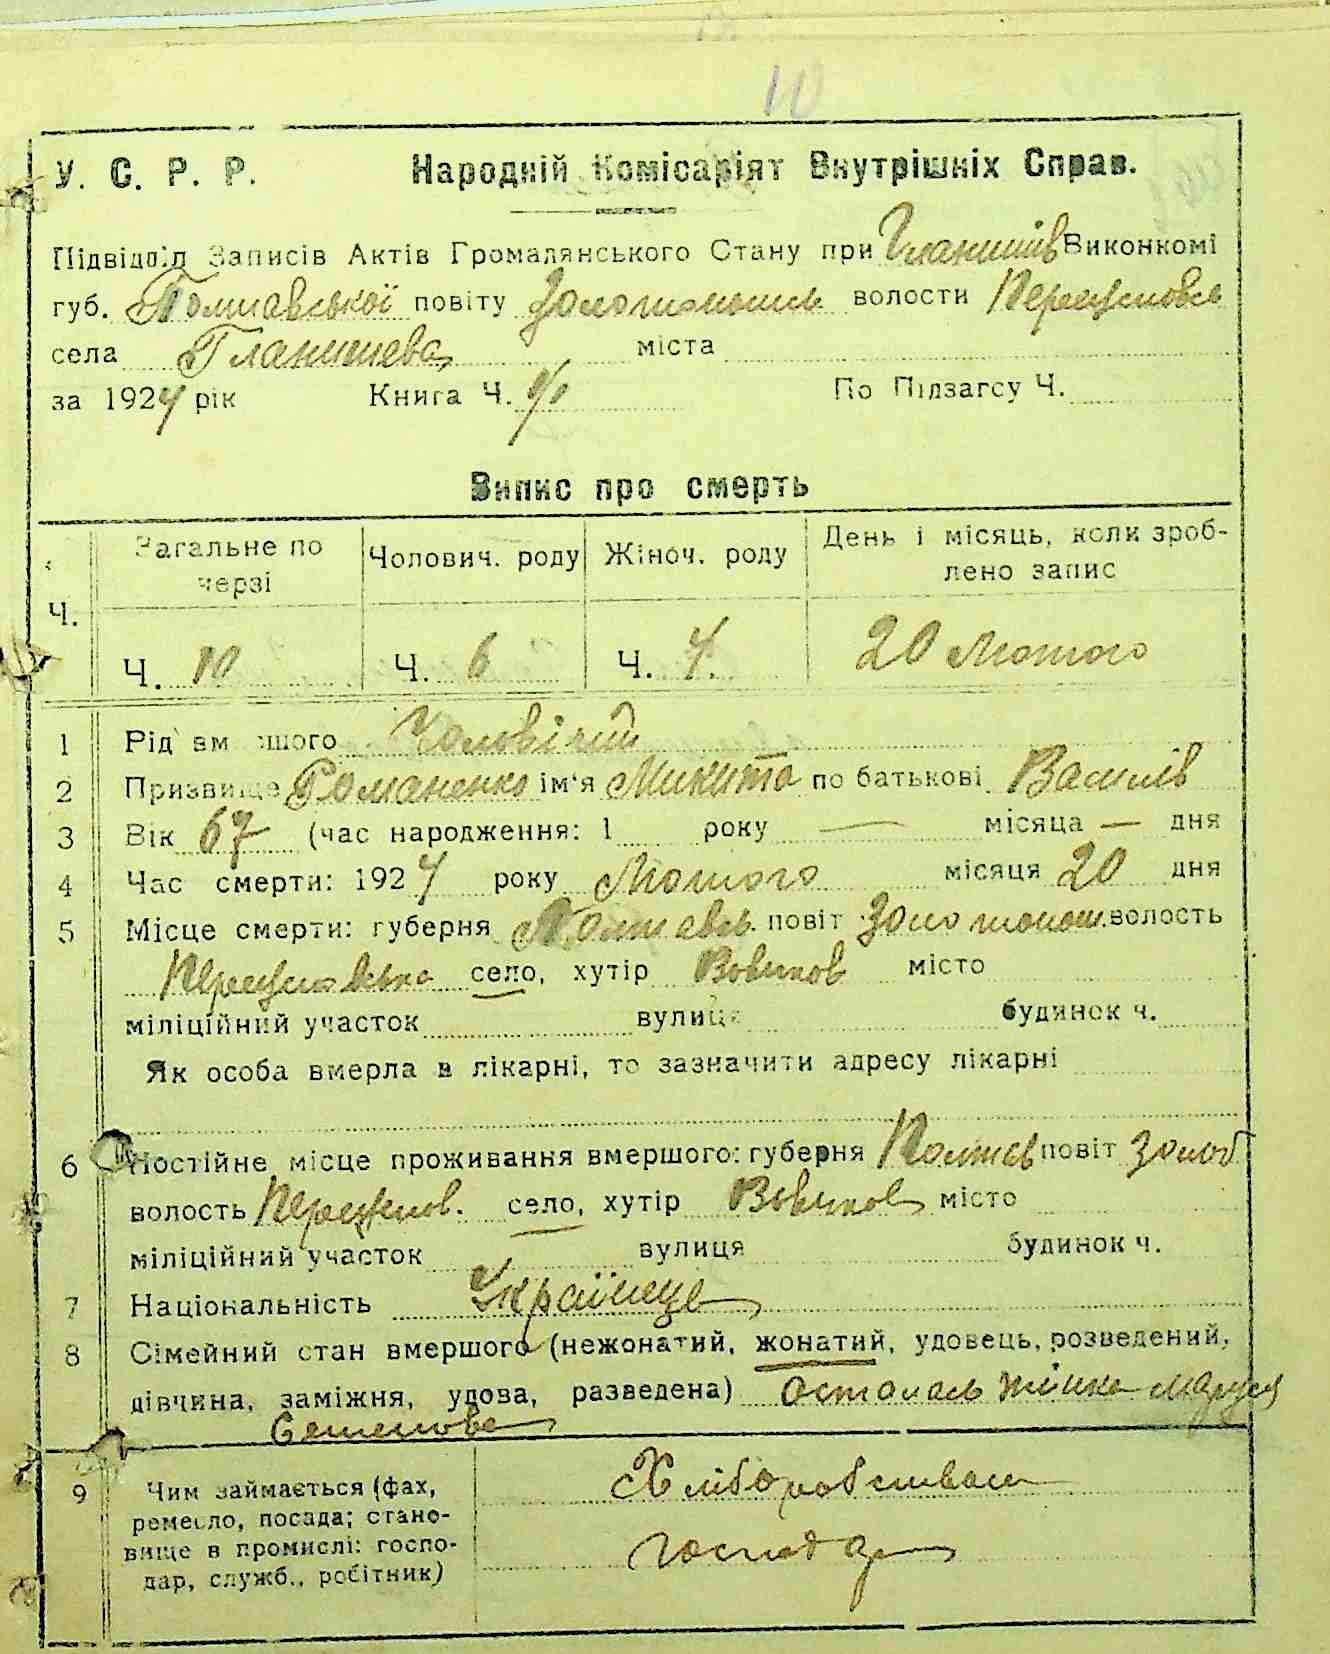 10
У. С. Р. Р. Народній Комісаріят Внутрішніх Справ.
Підвідділ Записів Актів Громадянського Стану при Гланишів Виконкомі
губ. Полтавської повіту Золотоношсь волости
села Гланишева міста
за 1924 рік Книга Ч. По Підзагсу Ч.
Випис про смерть
Ч. Загальне по черзі Чолович. роду Жіноч. роду День і місяць, коли зроблено запис
Ч. 10 Ч. 6 Ч. 4 20 Лютого
1 Рід вмершого Чоловічий
2 Призвище Романенко ім'я Микита по батькові Василів
3 Вік 67 (час народження: 1 року — місяца — дня
4 Час смерти: 1924 року Лютого місяця 20 дня
5 Місце смерти: губерня Полтавсь. повіт Золотонош. волость
село, хутір Вовчков місто
міліційний участок вулиця будинок ч.
Як особа вмерла в лікарні, то зазначити адресу лікарні
6 Постійне місце проживання вмершого: губерня Полтав повіт Золот
волость село, хутір Вовчков місто
міліційний участок вулиця будинок ч.
7 Національність Українець
8 Сімейний стан вмершого (нежонатий, жонатий, удовець, розведений,
дівчина, заміжня, удова, разведена) осталась жінка Маруся
Семенова
9 Чим займається (фах, Хліборобством
ремесло, посада; стано-
вище в промислі: госпо- господар
дар, служб., робітник)